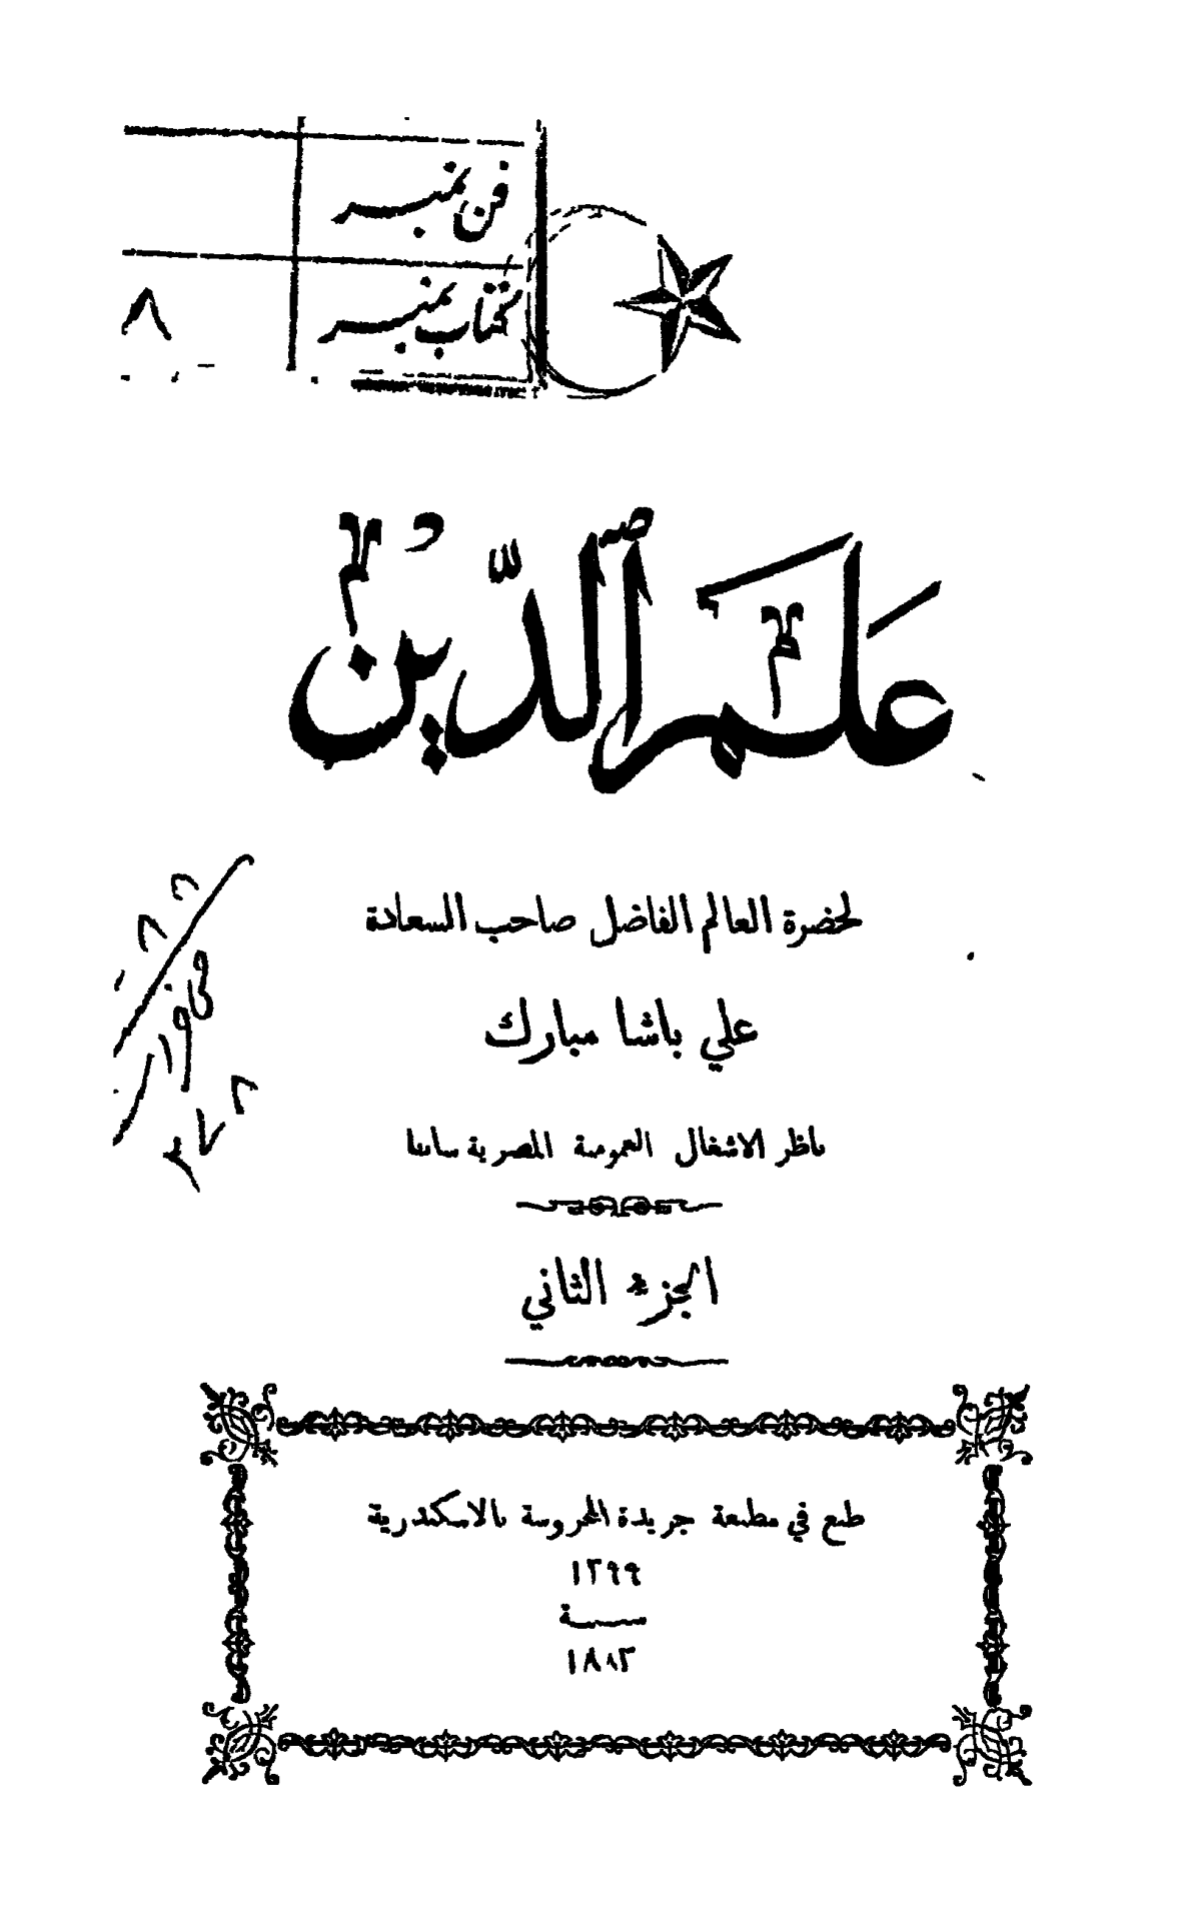 فن نمبر
كتاب نمبر ٨
عَلَمُ الدِّين
لحضرة العالم الفاضل صاحب السعادة
علي باشا مبارك
ناظر الاشغال العمومية المصرية سابقا
الجزء الثاني
طبع في مطبعة جريدة المحروسة بالاسكندرية
١٢٩٩
سنة
١٨٨٢